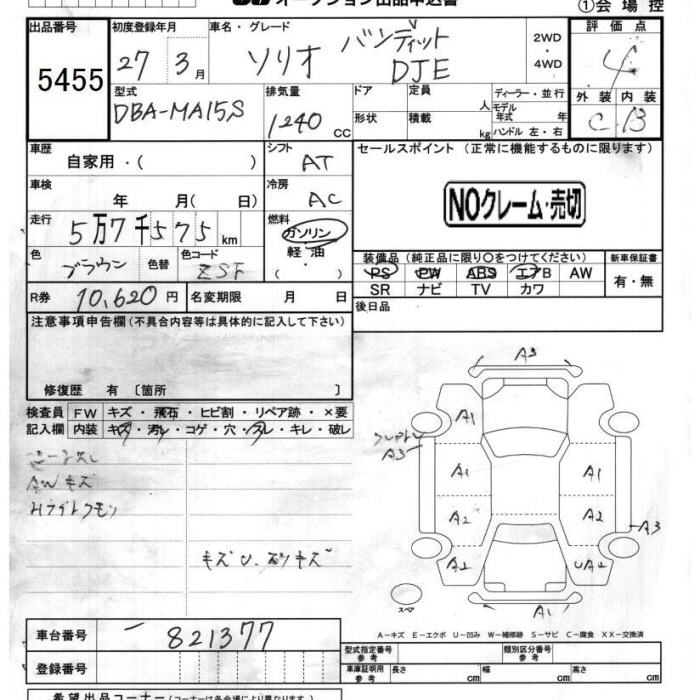 オークション出品申込書
①会場控
出品番号 初度登録年月 車名・グレード 評価点
5455 27年 3月 ソリオ バンディット DJE 2WD ・ 4WD 4
外装 内装
C B
型式 排気量 ドア 定員 人 ディーラー・並行
DBA-MA15S 1240 CC 形状 積載 kg モデル年式 年
ハンドル 左・右
車歴 シフト セールスポイント (正常に機能するものに限ります)
自家用・( ) AT
車検 冷房 NOクレーム・売切
年 月( 日) AC
走行 燃料
5万7千575km ガソリン
軽・油
・( )
色 色替 色コード 装備品 (純正品に限り○をつけてください) 新車保証書
ブラウン ZSF PS PW ABS エアB AW 有・無
SR ナビ TV カワ
R券 10,620円 名変期限 月 日 後日品
注意事項申告欄(不具合内容等は具体的に記入して下さい)
修復歴 有 [箇所 ]
検査員 FW キズ・飛石・ヒビ割・リペア跡・×要
記入欄 内装 キズ・汚レ・コゲ・穴・スレ・キレ・破レ
AWキズ
Hライトクモリ
A3
A1
A3
A1 A1
A2 A2
A3
A2 UA2
A1
スペア
A-キズ E-エクボ U-凹み W-補修跡 S-サビ C-腐食 XX-交換済
車台番号 821377
登録番号
型式指定番号 参考 類別区分番号 参考
車庫証明用 参考 長さ cm 幅 cm 高さ cm
希望出品コーナー(コーナーは各会場により異なります。)